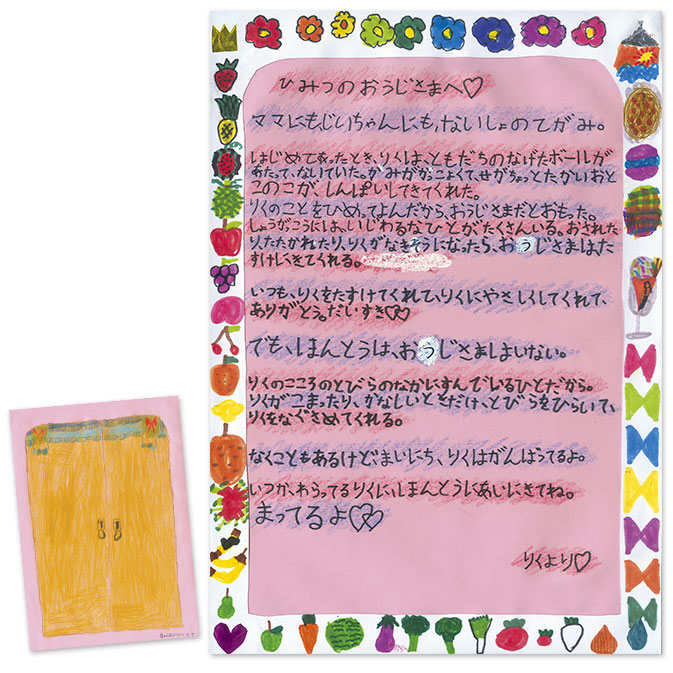 ひみつのおうじさまへ♡
ママにも、じいちゃんにも、ないしょのてがみ。
はじめてあったとき、りくは、ともだちのなげたボールが
あたって、ないていた。かみがかっこよくて、せがちょっとたかいおと
このこが、しんぱいしてきてくれた。
りくのことをひめってよんだから、おうじさまだとおもった。
しょうがっこうには、いじわるなひとがたくさんいる。おされた
り、たたかれたり、りくがなきそうになったら、おうじさまはた
すけにきてくれる。
いつも、りくをたすけてくれて、りくにやさしくしてくれて、
ありがとう。だいすき♡♡
でも、ほんとうは、おうじさまはいない。
りくのこころのとびらのなかにすんでいるひとだから。
りくがこまったり、かなしいときだけ、とびらをひらいて、
りくをなぐさめてくれる。
なくこともあるけど、まいにち、りくはがんばってるよ。
いつか、わらってるりくに、ほんとうにあいにきてね。
まってるよ♡♡
りくより♡